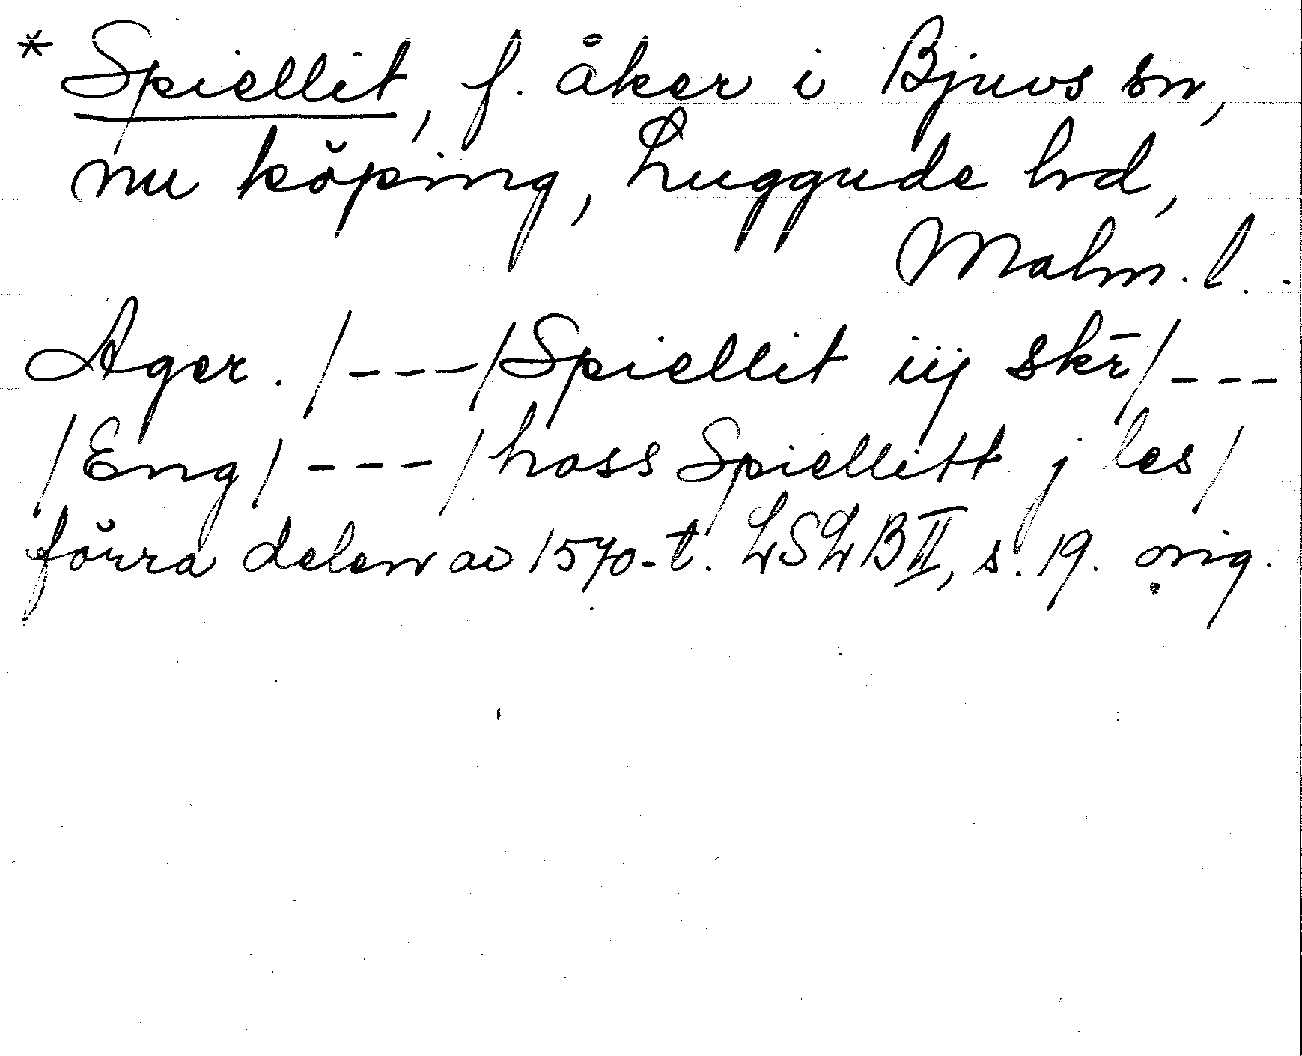 * Spiellit, f. åker i Bjuvs sn,
nu köping, Luggude hd,
Malm. l.
Ager. /---/ Spiellit iij skr̄ /---
/Eng/ ---/ hoss Spiellitt j les/
förra delen av 1570-t. LSLB II, s. 19. orig.